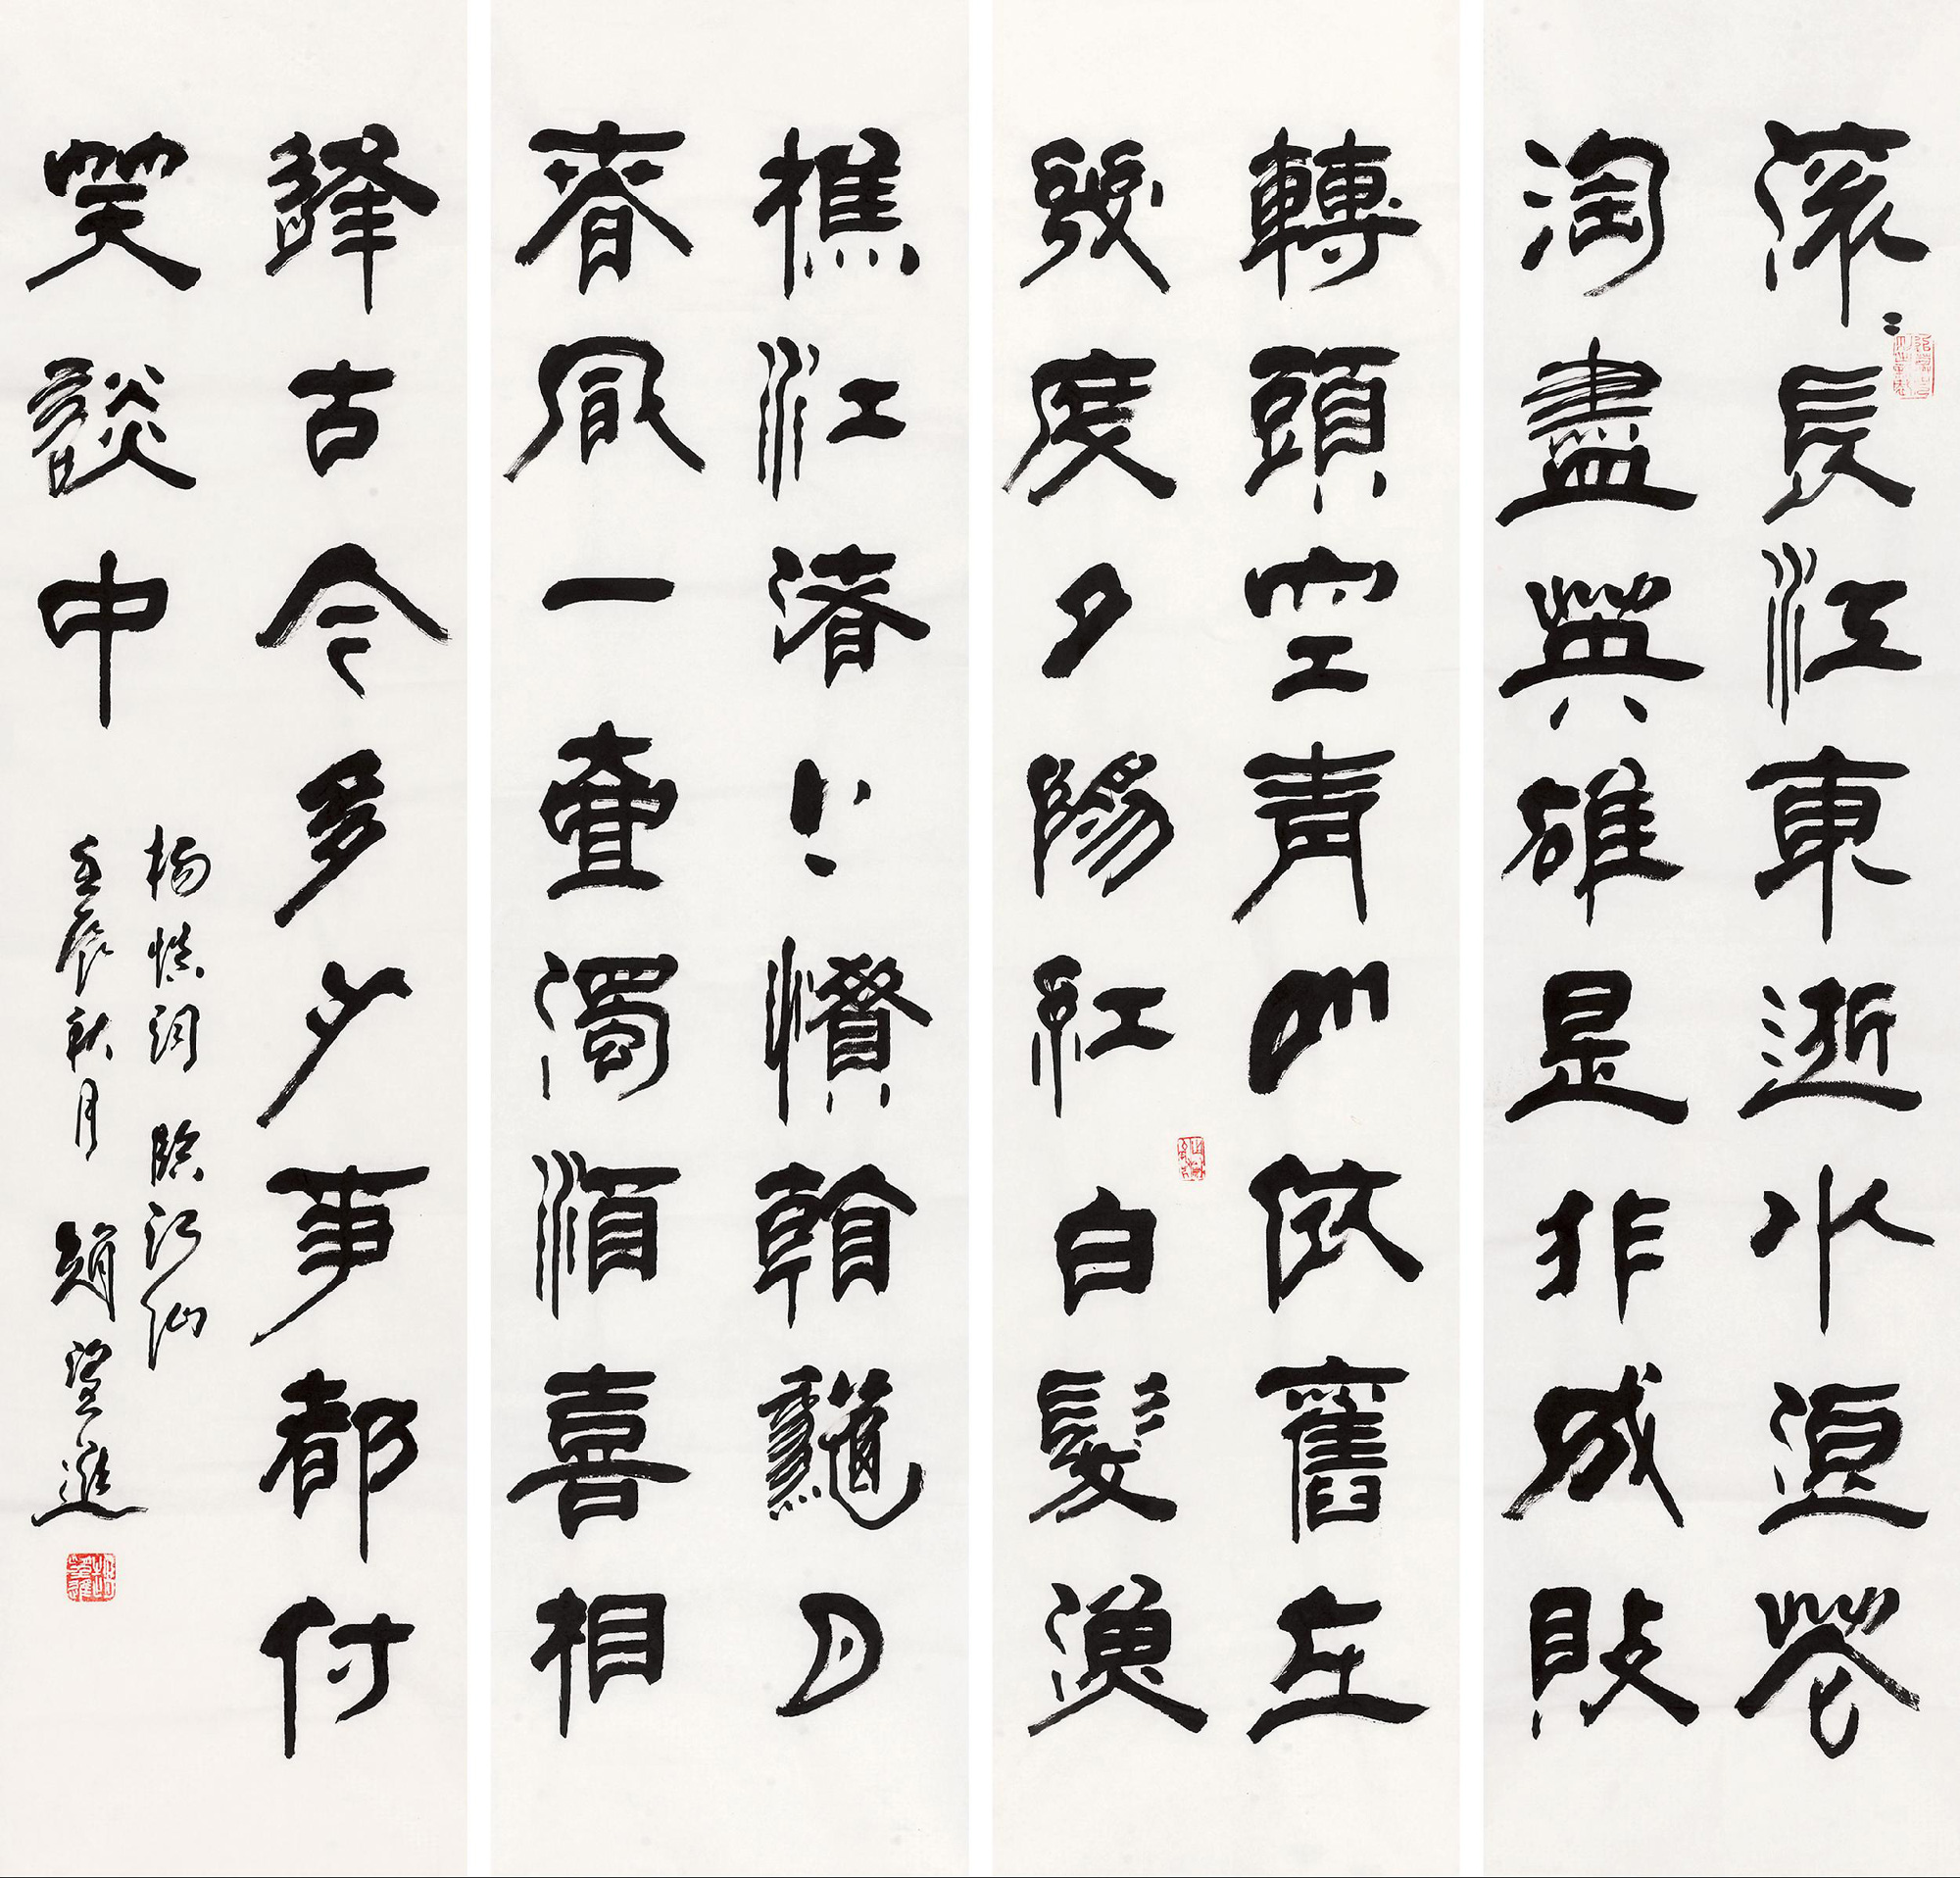 滚〻長江東逝水浪花
淘盡英雄是非成敗
轉頭空青山依舊在
幾度夕陽紅白髮漁
樵江渚上慣看龝月
春風一壺濁酒喜相
逢古今多少事都付
笑談中
楊慎詞 臨江仙
壬辰秋月 趙望進